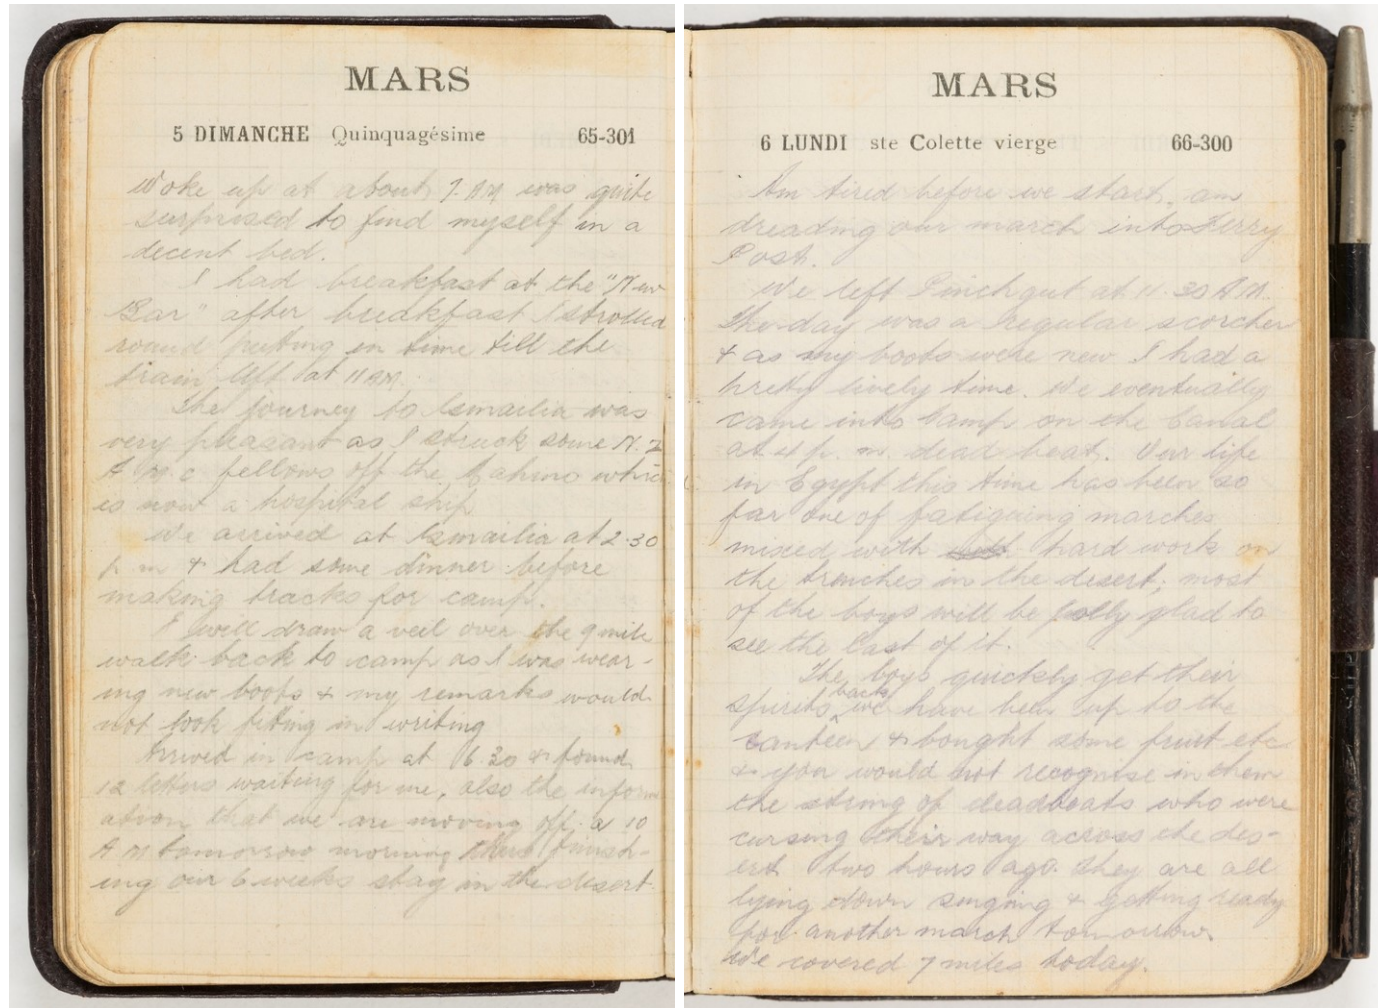 MARS
5 DIMANCHE Quinquagésime 65-301
Woke up at about 7. AM was quite
surprised to find myself in a
decent bed.
I had breakfast at the "New
Bar" after breakfast I strolled
round putting in time till the
train left at 11 AM.
The journey to Ismailia was
very pleasant as I struck some N. Z
A. M. C fellows off the Tahino which
is now a hospital ship
We arrived at Ismailia at 2.30
p m & had some dinner before
making tracks for camp.
I will draw a veil over the 9 mile
walk back to camp as I was wear-
ing new boots & my remarks would
not look fitting in writing
Arrived in camp at 6.30 & found
12 letters waiting for me, also the inform
ation that we are moving off a 10
A M tomorrow morning thus finish-
ing our 6 weeks stay in the desert.
MARS
6 LUNDI ste Colette vierge 66-300
Am tired before we start, am
dreading our march into Ferry
Post.
We left Pinchgut at 11.30 A.M.
The day was a regular scorcher
& as my boots were new I had a
pretty lively time. We eventually
came into camp on the Canal
at 4 p. m. dead beat. Our life
in Egypt this time has been so
far one of fatiguing marches
mixed with hard work on
the trenches in the desert; most
of the boys will be jolly glad to
see the last of it.
The boys quickly get their
spirits back we have been up to the
canteen & bought some fruit etc
& you would not recognise in them
the string of deadbeats who were
cursing their way across the des-
ert two hours ago. They are all
lying down singing & getting ready
for another march tomorrow.
We covered 7 miles today.